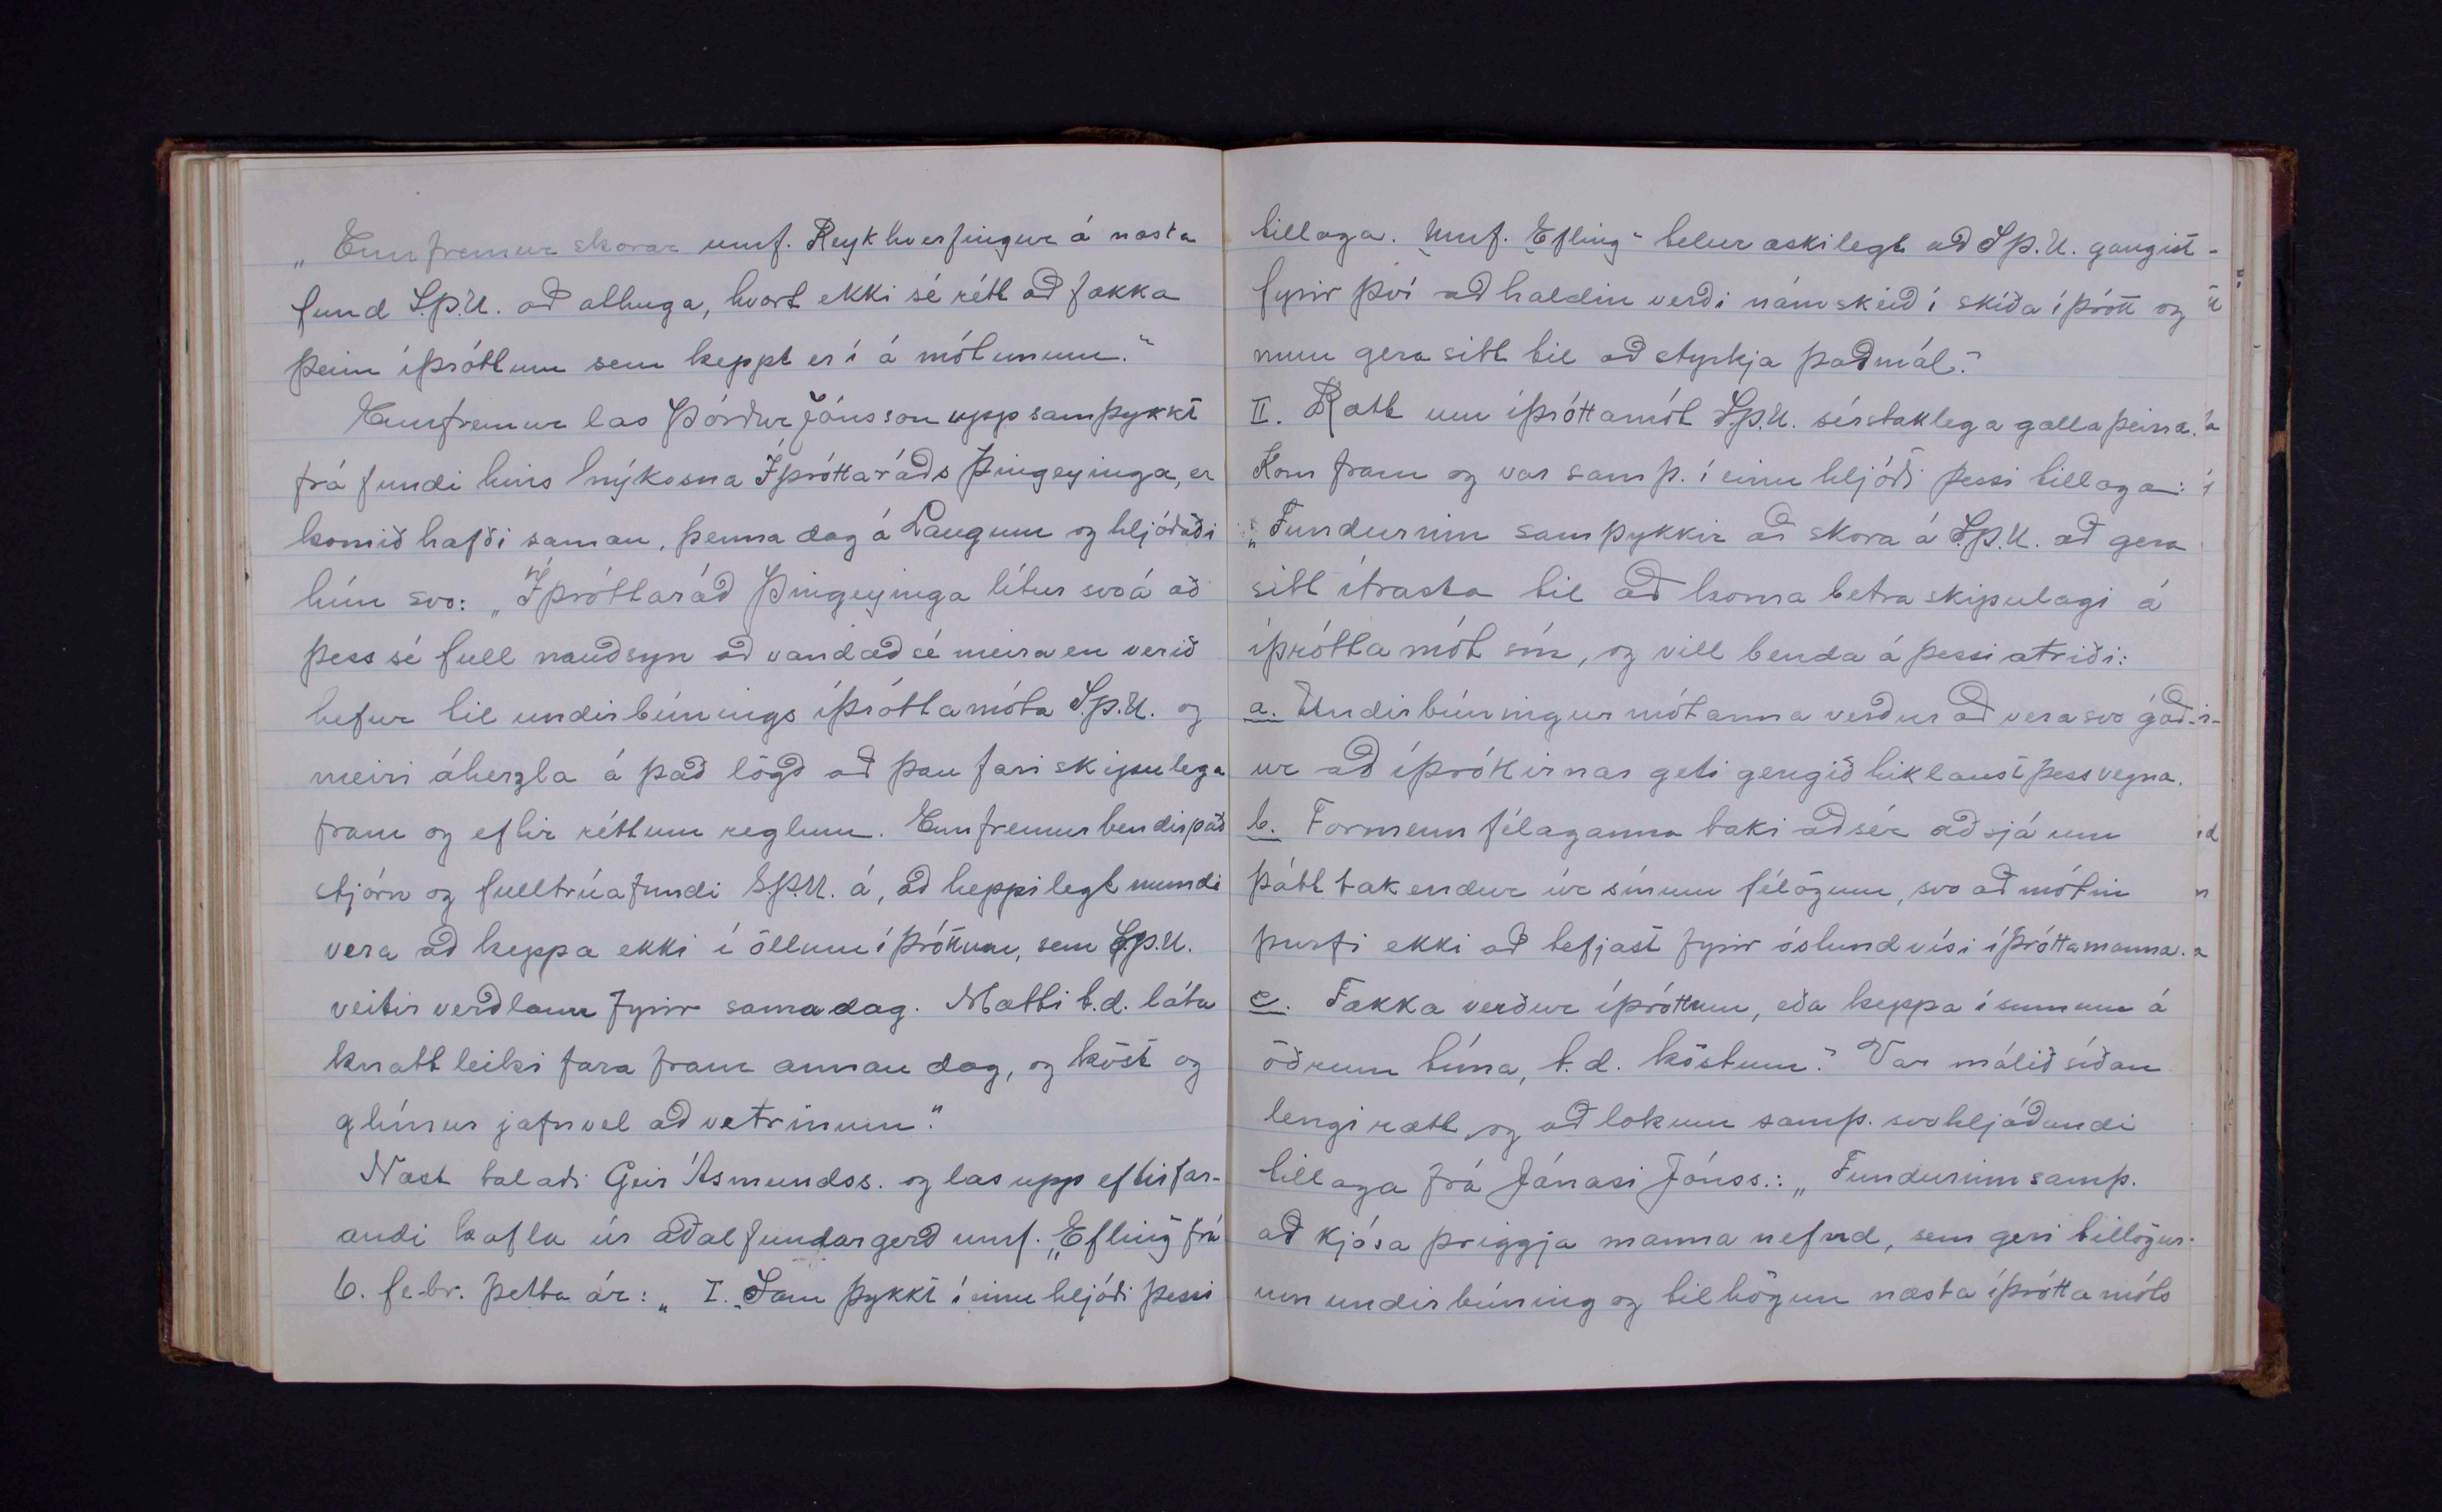 „Ennfremur skorar umf. Reykhverfingur á næsta
fund S.Þ.U. að athuga, hvort ekki sé rétt að fækka
þeim íþróttum sem keppt er í á mótunum."
Ennfremur las Þórður Jónsson upp samþykkt
frá fundi hins nýkosna Íþróttaráðs Þingeyinga, er
komið hafði saman, þenna dag á Laugum og hljóðaði
hún svo: „Íþróttaráð Þingeyinga lítur svo á að
þess sé full nauðsyn að vandað sé meira en verið
hefur til undirbúnings íþróttamóta S.Þ.U. og
meiri áherzla á það lögð að þau fari skipulega
fram og eftir réttum reglum. Ennfremur bendir það
stjórn og fulltrúafundi S.Þ.U. á, að heppilegt mundi
vera að keppa ekki í öllum íþróttum, sem S.Þ.U.
veitir verðlaun fyrir sama dag. Mætti t.d. láta
knattleiki fara fram annan dag, og köst og
glímur jafnvel að vetrinum."
Næst talaði Geir Ásmundss. og las upp eftirfar-
andi kafla úr aðalfundargerð umf. „Efling" frá
6. febr. þetta ár: „I. Samþykkt í einu hljóði þessi
tillaga. „Umf. „Efling" telur æskilegt að S.Þ.U. gangist
fyrir því að haldin verði námskeið í skíðaíþrótt og
mun gera sitt til að styrkja það mál."
II. Rætt um íþróttamót S.Þ.U. sérstaklega galla þeirra.
Kom fram og var samþ. í einu hljóði þessi tillaga:
„Fundurinn samþykkir að skora á S.Þ.U. að gera
sitt ítrasta til að koma betra skipulagi á
íþróttamót sín, og vill benda á þessi atriði:
a. Undirbúningur mótanna verður að vera svo góð-
ur að íþróttirnar geti gengið hiklaust þess vegna.
b. Formenn félaganna taki að sér að sjá um
þátttakendur úr sínum félögum, svo að mótin
þurfi ekki að tefjast fyrir óstundvísi íþróttamanna.
c. Fækka verður íþróttum, eða keppa í sumum á
öðrum tíma, t.d. köstum." Var málið síðan
lengi rætt, og að lokum samþ. svohljóðandi
tillaga frá Jónasi Jónss.: „Fundurinn samþ.
að kjósa þriggja manna nefnd, sem geri tillögur
um undirbúning og tilhögun næsta íþróttamóts